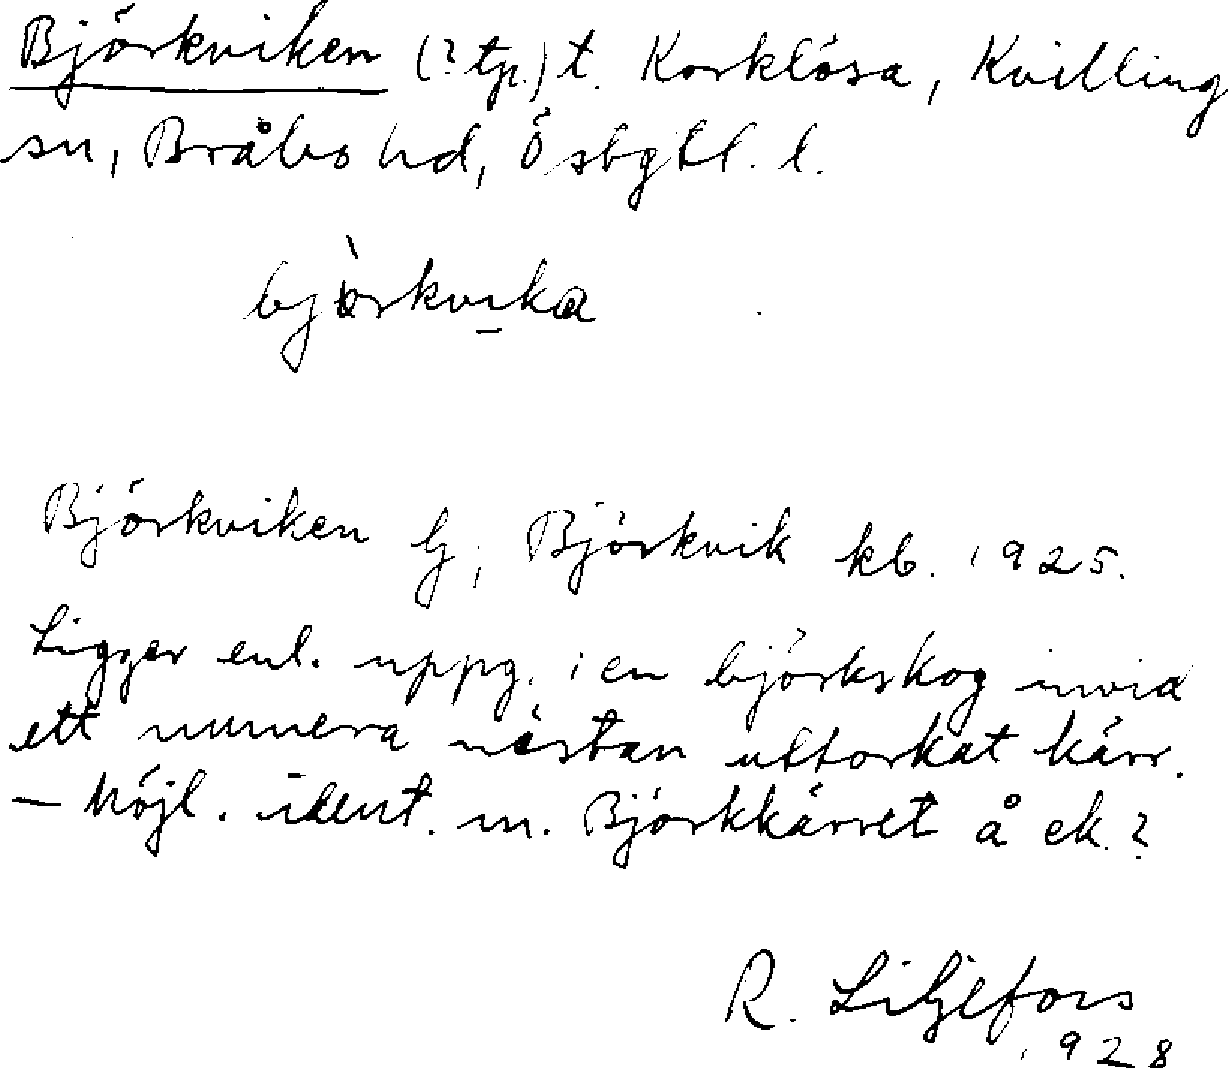 Björkviken (? tp.) t. Korklösa, Kvilling
sn, Bråbo hd, Ösbgtl. l.
bjòrkvika
Björkviken lj; Björkvik kb. 1925.
Ligger enl. uppg. i en björkskog invid
ett numera nästan uttorkat kärr.
— Möjl. ident. m. Björkkärret å ek.?
R. Liljefors
1928